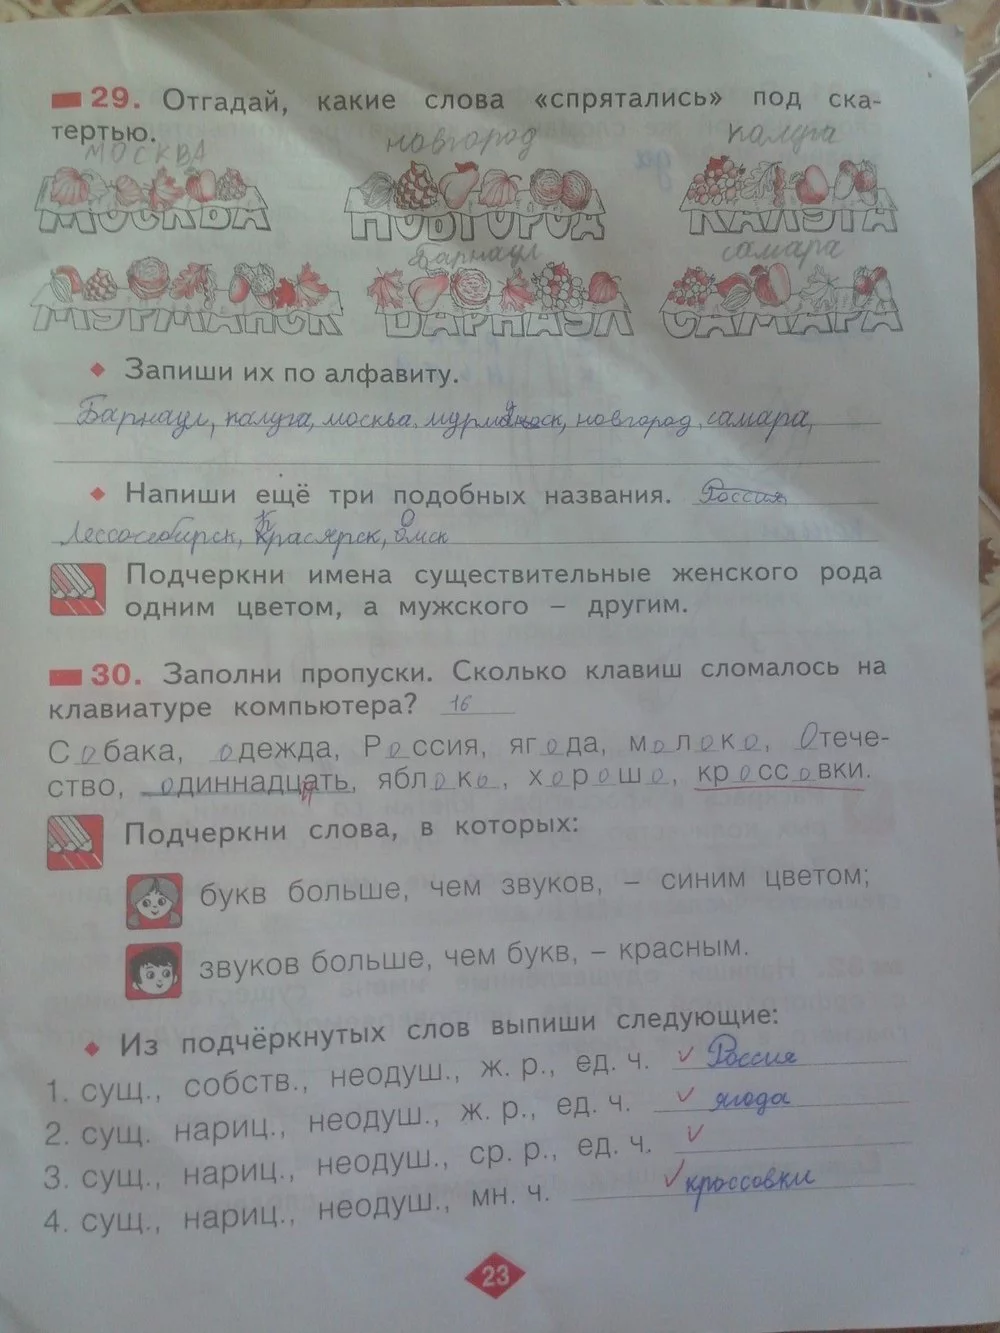 29. Отгадай, какие слова «спрятались» под ска-
тертью.
москва новгород калуга
МОСКВА НОВГОРОД КАЛУГА
Барнаул самара
МУРМАНСК БАРНАУЛ САМАРА
Запиши их по алфавиту.
Барнаул, калуга, москва, мурманск, новгород, самара,
Напиши ещё три подобных названия. Россия
Лессосибирск, Краснярск, Омск
Подчеркни имена существительные женского рода
одним цветом, а мужского – другим.
30. Заполни пропуски. Сколько клавиш сломалось на
клавиатуре компьютера? 16
Собака, одежда, Россия, ягода, молоко, Отече-
ство, одиннадцать, яблоко, хорошо, кроссовки.
Подчеркни слова, в которых:
букв больше, чем звуков, – синим цветом;
звуков больше, чем букв, – красным.
Из подчёркнутых слов выпиши следующие:
1. сущ., собств., неодуш., ж. р., ед. ч. Россия
2. сущ. нариц., неодуш., ж. р., ед. ч. ягода
3. сущ., нариц., неодуш., ср. р., ед. ч.
4. сущ., нариц., неодуш., мн. ч. кроссовки
23